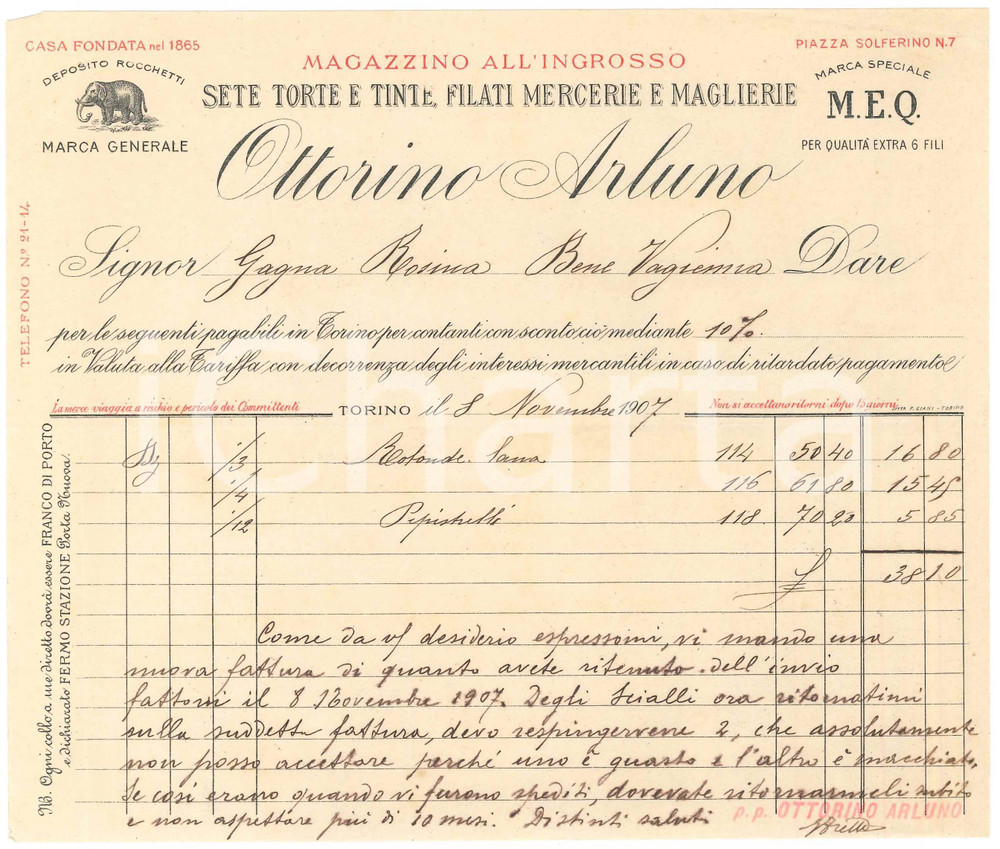 CASA FONDATA nel 1865
PIAZZA SOLFERINO N.7
MAGAZZINO ALL'INGROSSO
DEPOSITO ROCCHETTI
MARCA GENERALE
SETE TORTE E TINTE, FILATI MERCERIE E MAGLIERIE
MARCA SPECIALE
M.E.Q.
PER QUALITÀ EXTRA 6 FILI
Ottorino Arluno
TELEFONO Nº 21-14
Signor Gagna Rosina Bene Vagienna Dare
per le seguenti pagabili in Torino per contanti con sconto ciò mediante 10%.
in Valuta alla Tariffa con decorrenza degli interessi mercantili in caso di ritardato pagamento
La merce viaggia a rischio e pericolo dei Committenti
TORINO il 8 Novembre 1907
Non si accettano ritorni dopo 15 giorni
F. GIANI - TORINO
NB. Ogni collo a me diretto dovrà essere FRANCO DI PORTO
e dichiarato FERMO STAZIONE Porta Nuova.
Dz i/3 Rotonde lana 114 50 40 16 80
i/4 116 61 80 15 45
i/12 Pipistrelli 118 70 20 5 85
£ 38 10
Come da v/ desiderio espressomi, vi mando una
nuova fattura di quanto avete ritenuto dell'invio
fattovi il 8 Novembre 1907. Degli scialli ora ritornatimi
sulla suddetta fattura, devo respingervene 2, che assolutamente
non posso accettare perchè uno è guasto e l'altro è macchiato,
se così erano quando vi furono spediti, dovevate ritornarmeli subito
e non aspettare più di 10 mesi. Distinti saluti
p.p. OTTORINO ARLUNO
iCharta